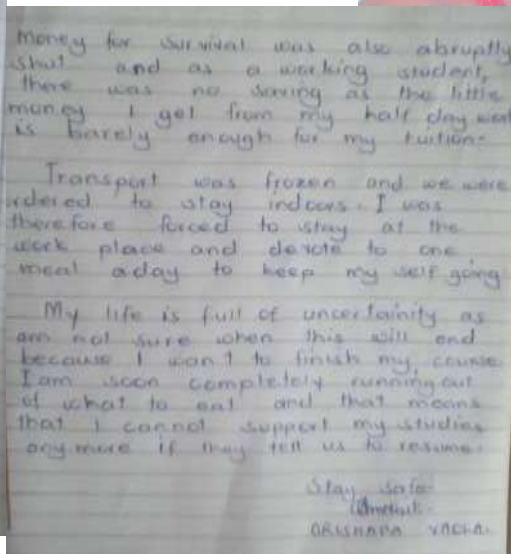 money for survival was also abruptly
shut and as a working student,
there was no saving as the little
money I get from my half day work
is barely enough for my tuition.
Transport was frozen and we were
ordered to stay indoors. I was
therefore forced to stay at the
work place and devote to one
meal a day to keep my self going
My life is full of uncertainity as
am not sure when this will end
because I want to finish my course
I am soon completely running out
of what to eat and that means
that I cannot support my studies
any more if they tell us to resume.
Stay safe.